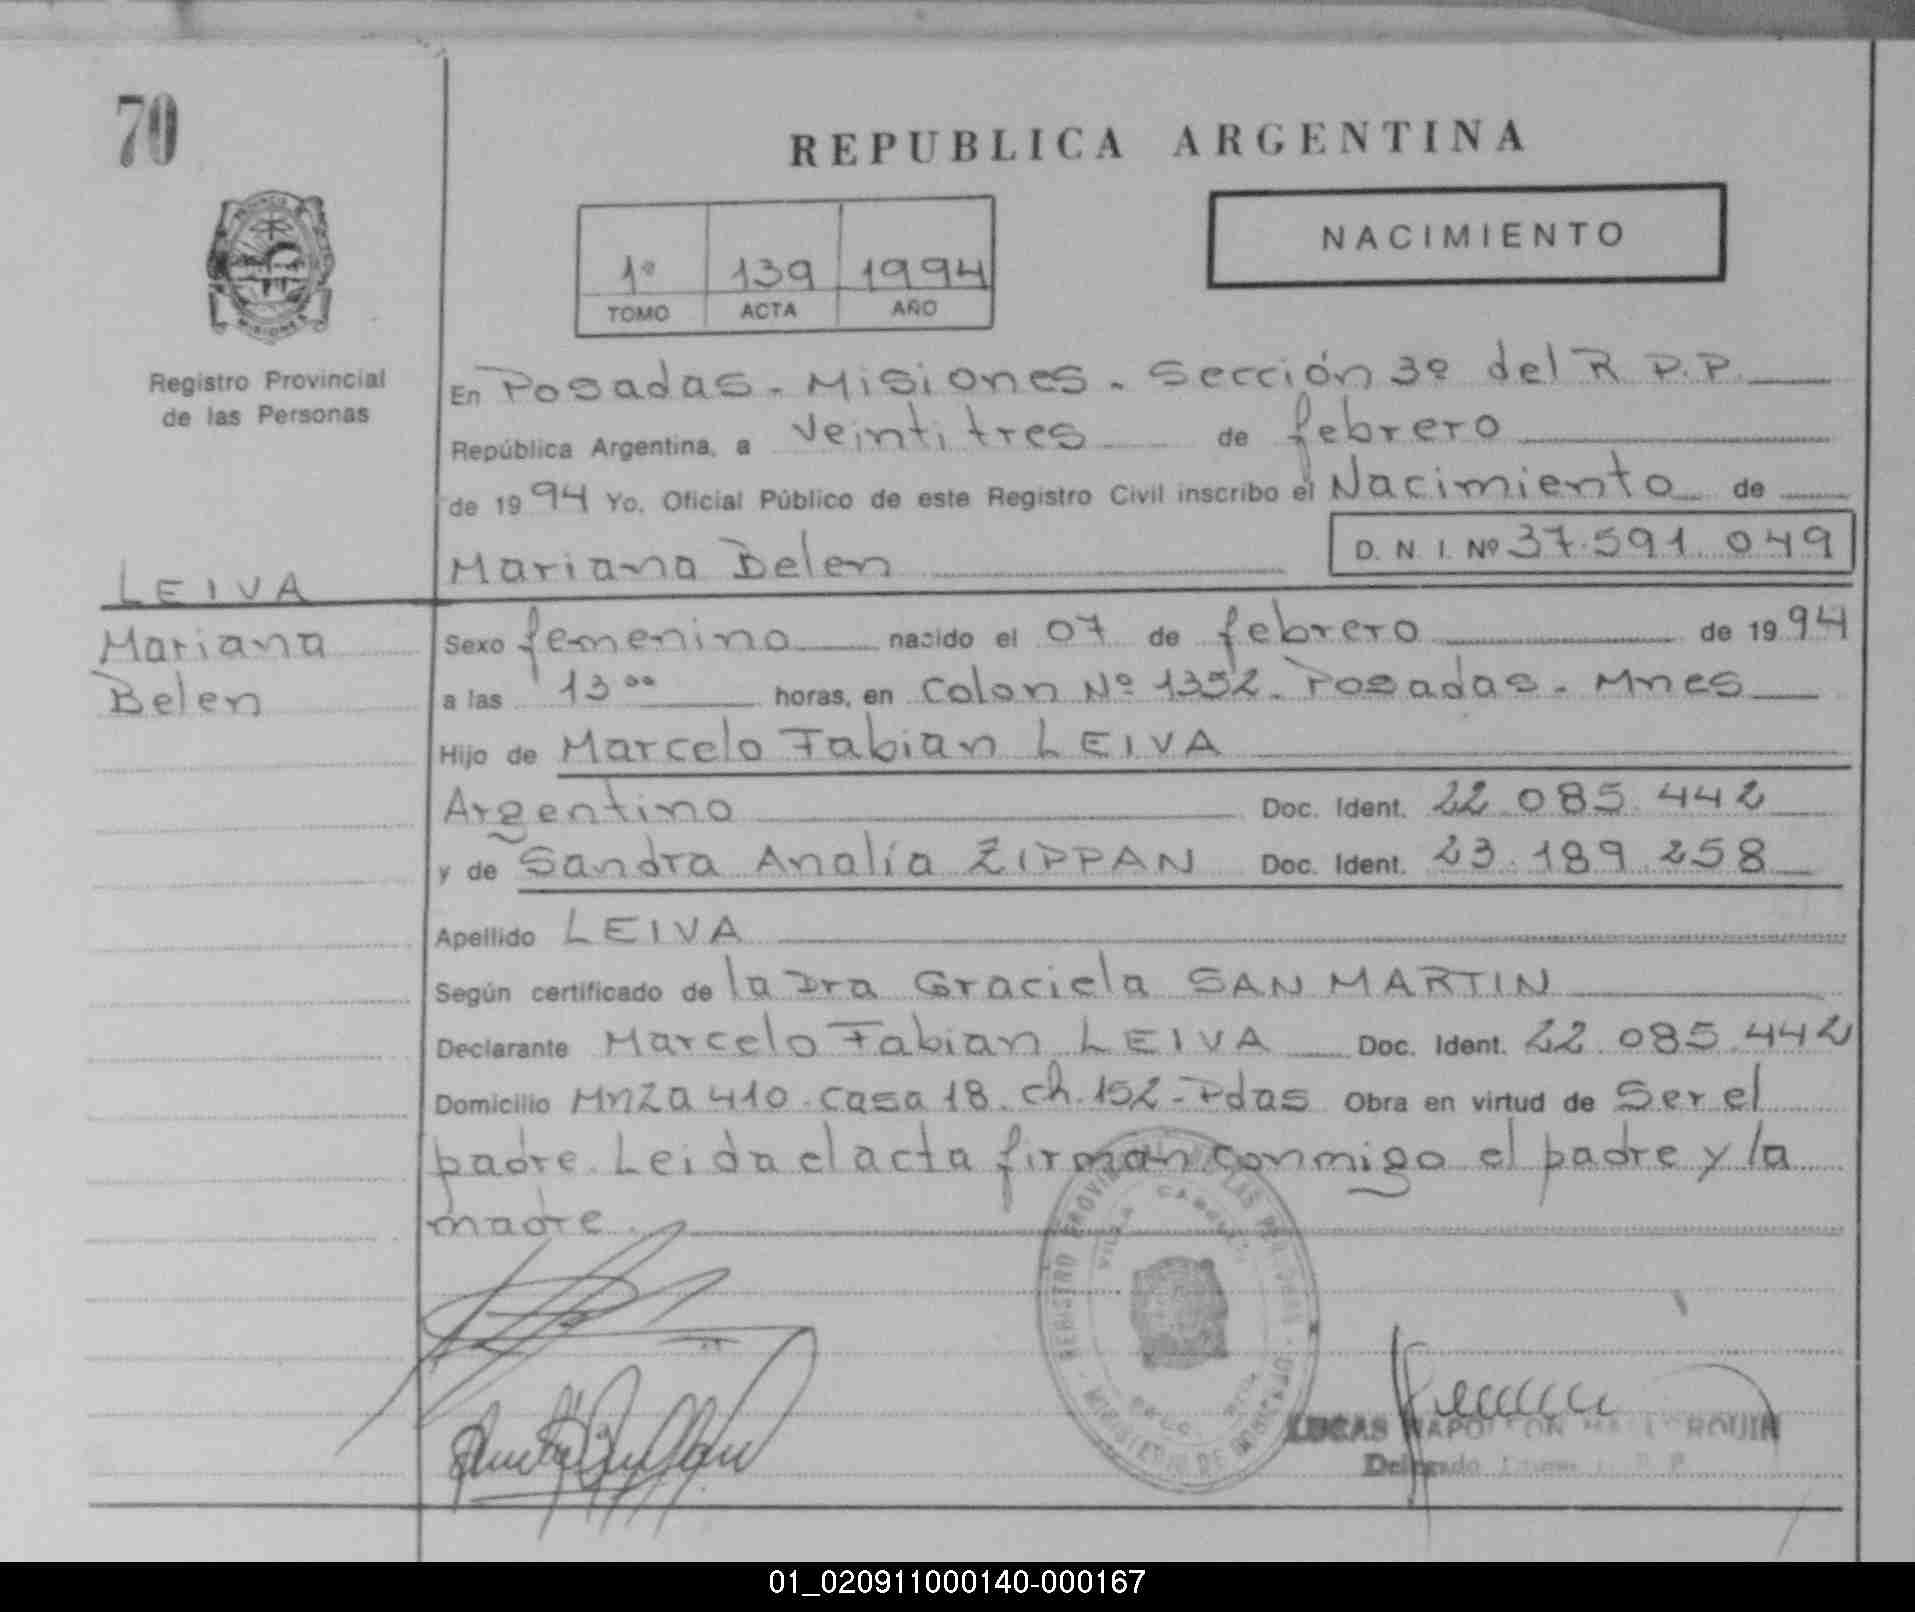 70
REPUBLICA ARGENTINA
NACIMIENTO
1º 139 1994
TOMO ACTA AÑO
MISIONES
Registro Provincial
de las Personas
En Posadas - Misiones - Sección 3º del R.P.P.
República Argentina, a veintitres de febrero
de 1994 Yo, Oficial Público de este Registro Civil inscribo el Nacimiento de
Mariana Belen D. N. I. Nº 37.591.049
LEIVA
Mariana
Belen
Sexo femenino nacido el 07 de febrero de 1994
a las 13 ºº horas, en Colon Nº 1352 - Posadas - Mnes
Hijo de Marcelo Fabian LEIVA
Argentino Doc. Ident. 22.085.442
y de Sandra Analía ZIPPAN Doc. Ident. 23.189.258
Apellido LEIVA
Según certificado de la Dra Graciela SAN MARTIN
Declarante Marcelo Fabian LEIVA Doc. Ident. 22.085.442
Domicilio Mnza 410 - casa 18 - ch. 152 - Pdas Obra en virtud de Ser el
padre. Leida el acta firman conmigo el padre y la
madre.
REGISTRO PROVINCIAL DE LAS PERSONAS
MINISTERIO DE
VILLA
LUCAS NAPOLEON
Delegado
01_020911000140-000167